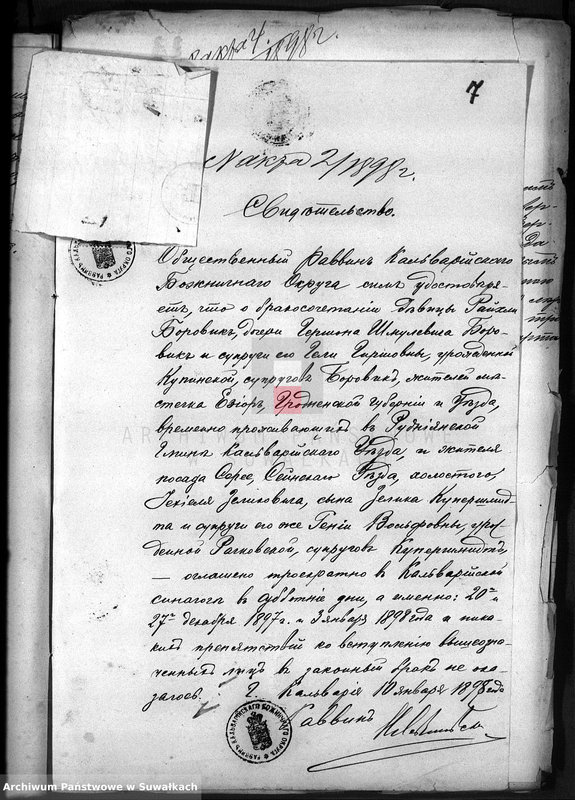 акта 4/1898г.
7
N акта 2/1898г.
Свидѣтельство.
Общественный Раввинъ Кальварійскаго
Божничнаго Округа симъ удостовѣря-
етъ, что о бракосочетаніи дѣвицы Райхли
Боровикъ, дочери Гершона Шмулевича Боро-
викъ и супруги его Гели Гиршовны, урожденной
Купинской, супруговъ Боровикъ, жителей мѣ-
стечка Езіоръ, Гродненской Губерніи и Уѣзда,
временно проживающихъ въ Рудкіянской
Гминѣ Кальварійскаго Уѣзда, и жителя
посада Сереѣ, Сейнскаго Уѣзда, холостого,
Іехіеля Зеликовича, сына Зелика Купершмид-
та и супруги его же Геніи Вольфовны, уро-
жденной Рачковской, супруговъ Купершмидтъ,
— оглашено троекратно въ Кальварійской
синагогѣ въ субботніе дни, а именно: 20го и
27го декабря 1897г. и 3 января 1898 года и ника-
кихъ препятствій ко вступленію вышеозна-
ченныхъ лицъ въ законный бракъ не ока-
залось. Г. Кальварія 10 января 1898 года
Раввинъ
ARCHIWUM PAŃSTWOWE
W SUWAŁKACH
Archiwum Państwowe w Suwałkach